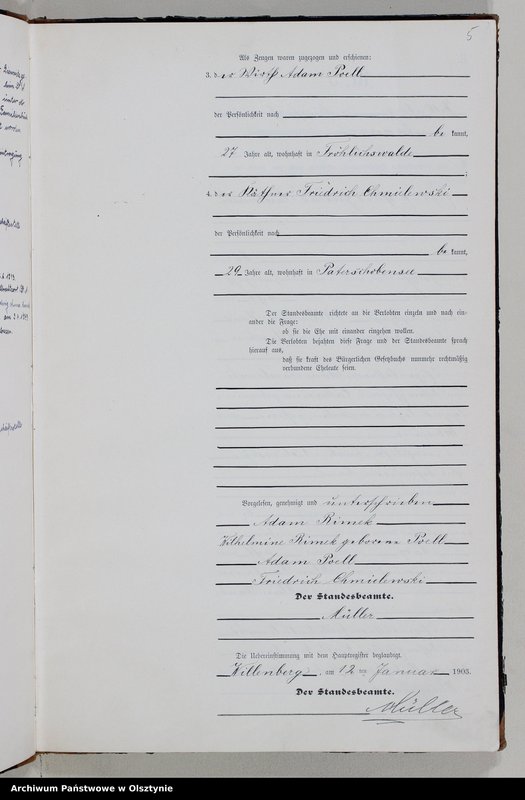 5
Als Zeugen waren zugezogen und erschienen:
3. der Wirth Adam Poell
der Persönlichkeit nach
be kannt,
27 Jahre alt, wohnhaft in Fröhlichswalde
;
4. der Käthner Friedrich Chmielewski
der Persönlichkeit nach
be kannt,
29 Jahre alt, wohnhaft in Paterschobensee
Der Standesbeamte richtete an die Verlobten einzeln und nach ein-
ander die Frage:
ob sie die Ehe mit einander eingehen wollen.
Die Verlobten bejahten diese Frage und der Standesbeamte sprach
hierauf aus,
daß sie kraft des Bürgerlichen Gesetzbuchs nunmehr rechtmäßig
verbundene Eheleute seien.
Vorgelesen, genehmigt und unterschrieben
Adam Rimek
Wilhelmine Rimek geborene Poell
Adam Poell
Friedrich Chmielewski
Der Standesbeamte.
Müller
Die Uebereinstimmung mit dem Hauptregister beglaubigt.
Willenberg, am 12 ten Januar 1903.
Der Standesbeamte.
Müller
Archiwum Państwowe w Olsztynie